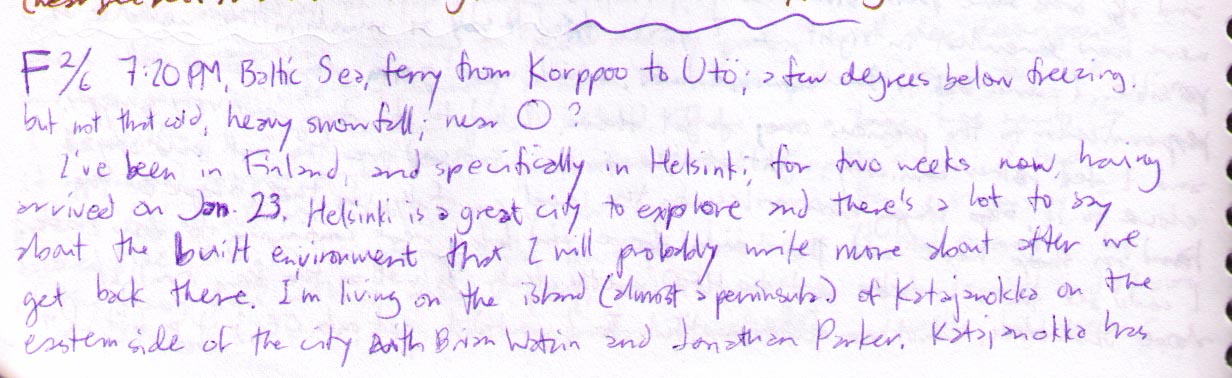 F 2/6 7:20 PM, Baltic Sea, ferry from Korppoo to Utö; a few degrees below freezing.
but not that cold, heavy snowfall; near O ?
I've been in Finland, and specifically in Helsinki, for two weeks now, having
arrived on Jan. 23. Helsinki is a great city to explore and there's a lot to say
about the built environment that I will probably write more about after we
get back there. I'm living on the island (almost a peninsula) of Katajanokka on the
eastern side of the city with Brian and Jonathan Parker. Katajanokka has